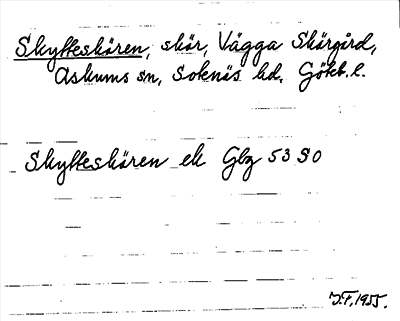 Skytteskären, skär, Vägga Skärgård,
Askums sn, Sotenäs hd, Göteb. l.
Skytteskären ek Gbg 53 SO
J.F. 1955.